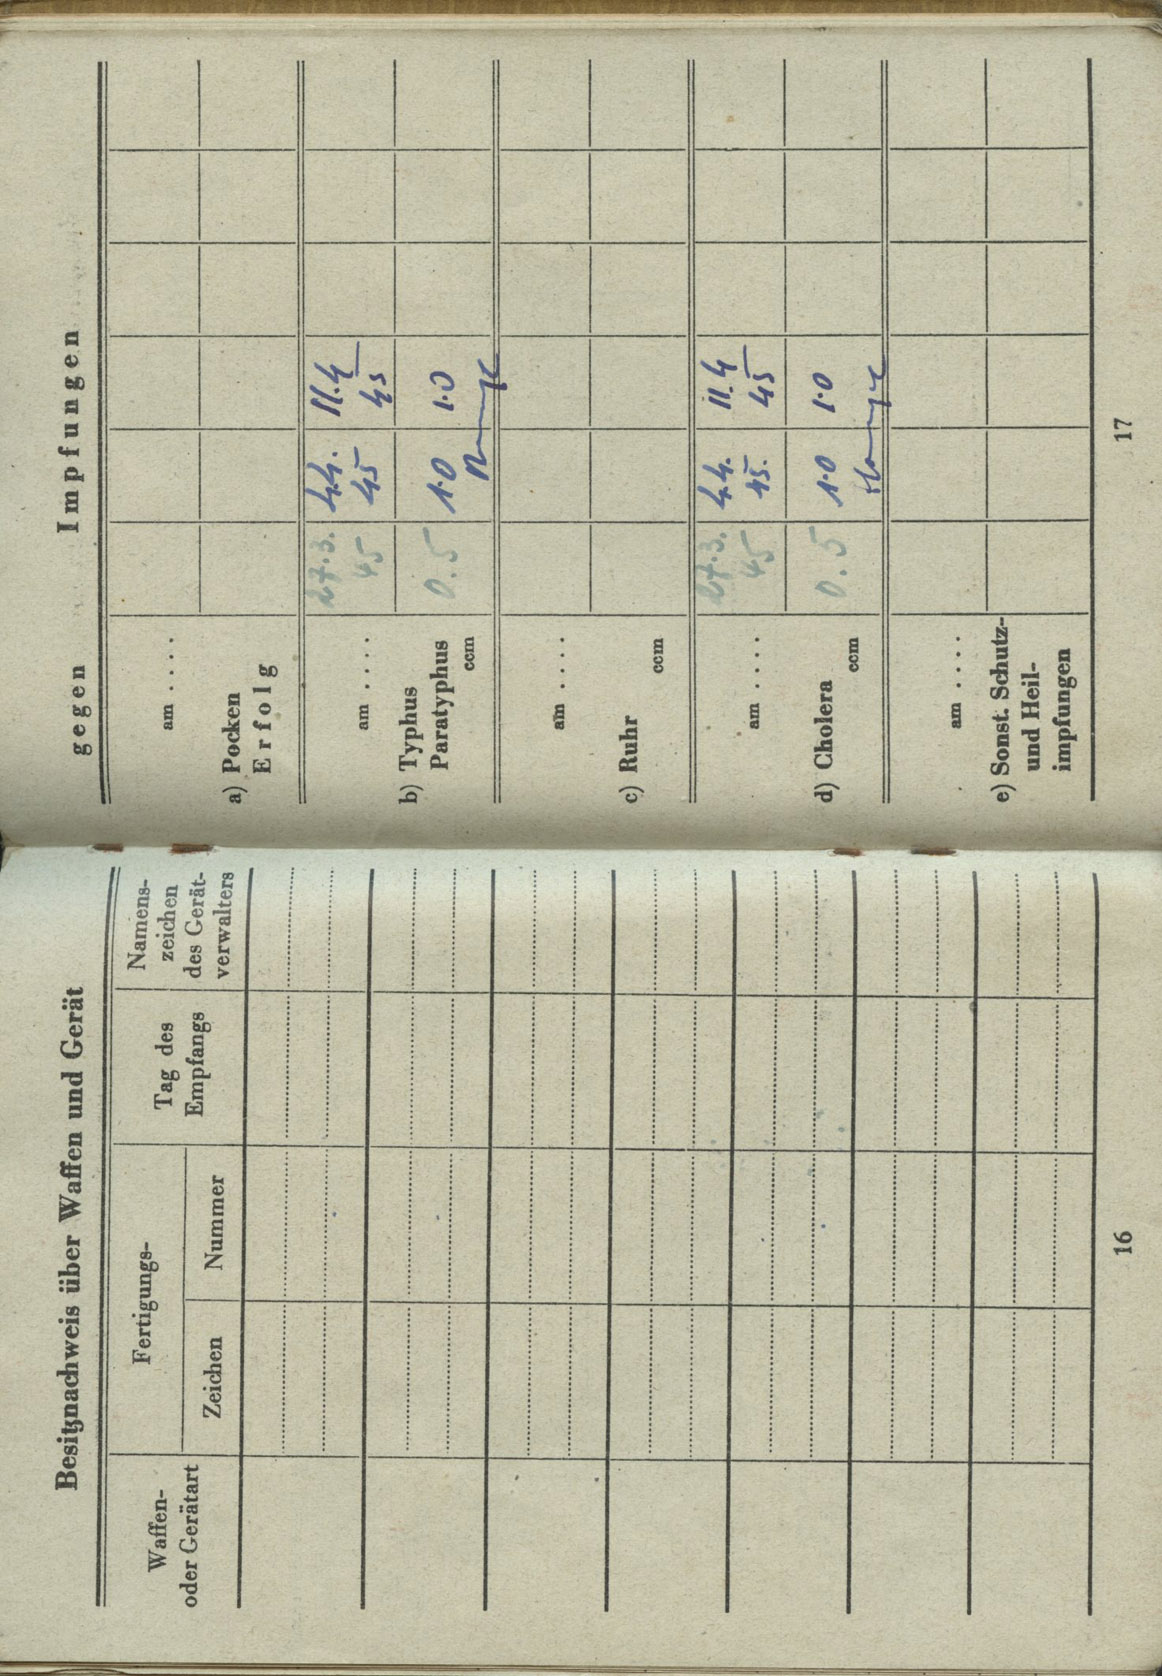 Besitznachweis über Waffen und Gerät
Waffen-
oder Gerätart
Fertigungs-
Zeichen
Nummer
Tag des
Empfangs
Namens-
zeichen
des Gerät-
verwalters
16
gegen Impfungen
am . . . .
a) Pocken
Erfolg
am . . . . 27.3. 4.4. 11.4
45 45 45
b) Typhus
Paratyphus 0.5 1.0 1.0
ccm
am . . . .
c) Ruhr
ccm
am . . . . 27.3. 4.4. 11.4
45 45. 45
d) Cholera 0.5 1.0 1.0
ccm
am . . . .
e) Sonst. Schutz-
und Heil-
impfungen
17